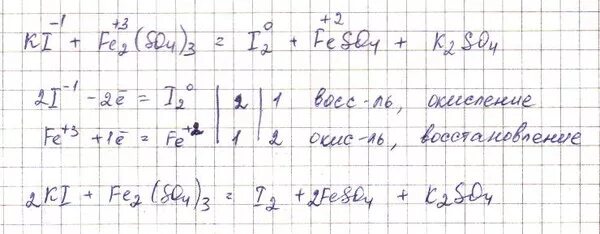 KI⁻¹ + Fe₂⁺³(SO₄)₃ = I₂⁰ + Fe⁺²SO₄ + K₂SO₄
2I⁻¹ - 2ē = I₂⁰ | 2 | 1 восс-ль, окисление
Fe⁺³ + 1ē = Fe⁺² | 1 | 2 окис-ль, восстановление
2KI + Fe₂(SO₄)₃ = I₂ + 2FeSO₄ + K₂SO₄